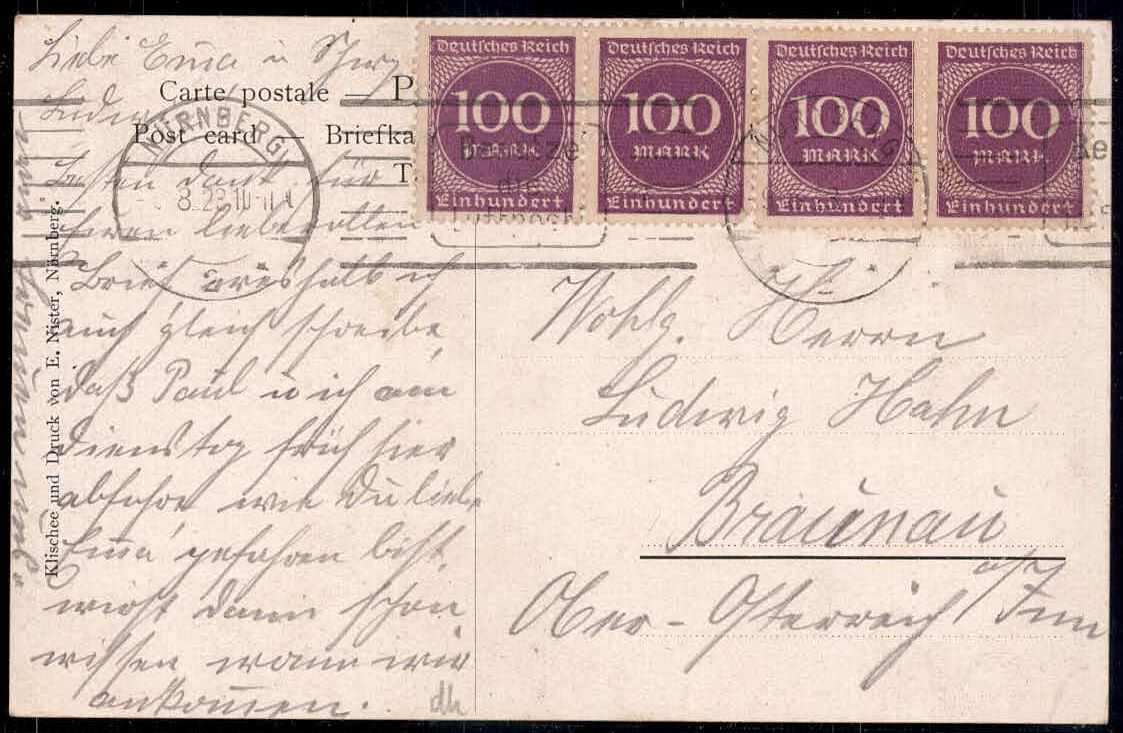 Liebe Emma u
Ludwig
Carte postale — P
Post card — Briefka
T
NUERNBERG
8.23.10-11
Deutsches Reich
100
MARK
Einhundert
Deutsches Reich
100
MARK
Einhundert
Deutsches Reich
100
MARK
Einhundert
Deutsches Reich
100
MARK
Einhundert
Benütze
die
Luftpost
Be
Besten Dank für
lieben
Brief weshalb ich
auch gleich schreibe,
daß Paul u ich am
Dienstag früh hier
abfahre wie Du liebe
Emma gefahren bist,
wirst dann schon
wissen wann wir
ankommen.
Klischee und Druck von E. Nister, Nürnberg.
Wohlg. Herrn
Ludwig Hahn
Braunau
a/
Ober-Österreich Inn